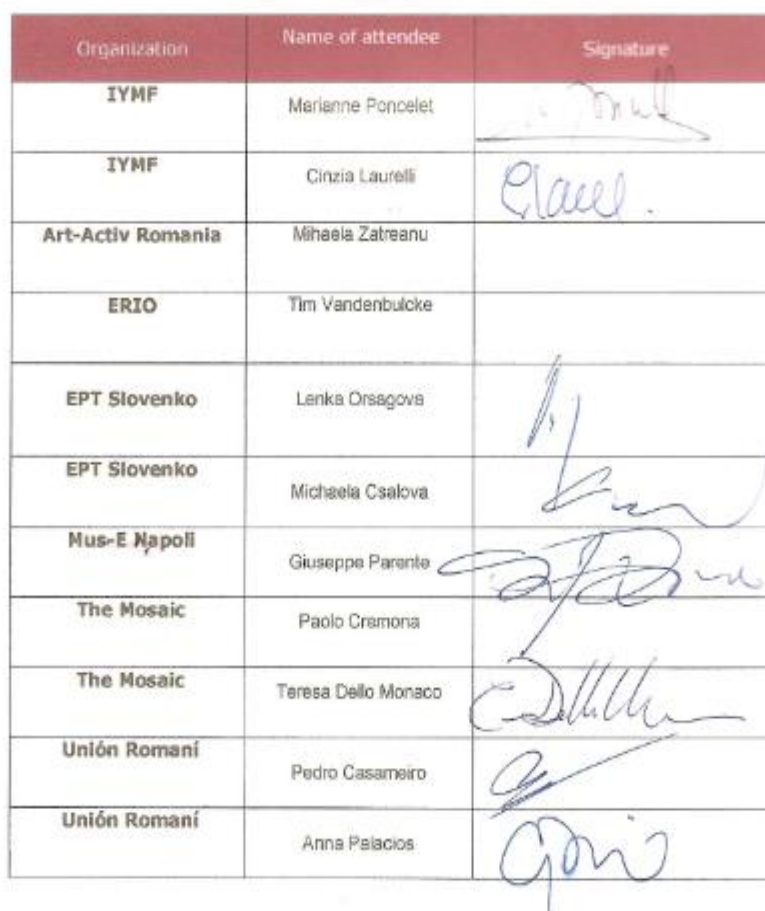 Organization Name of attendee Signature
IYMF Marianne Poncelet
IYMF Cinzia Laurelli
Art-Activ Romania Mihaela Zatreanu
ERIO Tim Vandenbulcke
EPT Slovenko Lenka Orsagova
EPT Slovenko Michaela Csalova
Mus-E Napoli Giuseppe Parente
The Mosaic Paolo Cremona
The Mosaic Teresa Dello Monaco
Unión Romaní Pedro Casameiro
Unión Romaní Anna Palacios